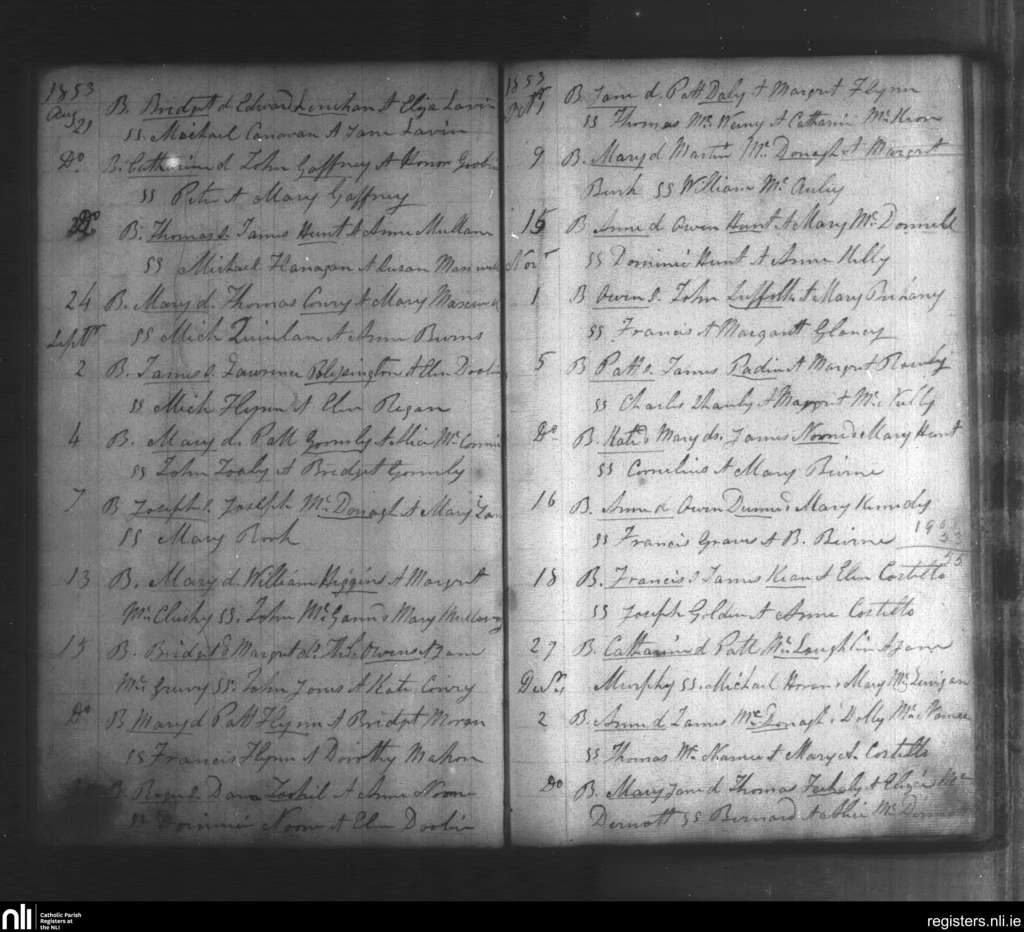 1853
Augt 21 B. Bridget d Edward Lenehan & Eliza Lavin
SS Michael Canavan & Jane Lavin
Do. B. Catharine d John Gaffney & Honor
SS Peter & Mary Gaffney
Do B. Thomas s. James Hunt & Anne Mullan
SS Michael Flanagan & Susan
24 B. Mary d. Thomas Conry & Mary
Septr SS Mich Quinlan & Anne Burns
2 B. James s. Lawrence Blessington & Elen
SS Mich Flynn & Elen Regan
4 B. Mary d. Patt Gormly & Allia Mc
SS John & Bridget Gormly
7 B Joseph s. Joseph Mc Donagh & Mary
SS Mary Rook
13 B. Mary d. William Higgins & Margret
Mc Clusky SS. John Mc Gann & Mary
15 B. Bridget & Margret ds. Thos. Owens & Jane
Mc SS. John Jones & Kate Conry
Do B Mary d Patt Flynn & Bridget Moran
SS Francis Flynn & Dorothy Mahon
B Roger s. & Anne Noone
SS Dominic Noone & Elen Doolin
1853
Octr 1 B. Jane d Patt Daly & Margret Flynn
SS Thomas Mc & Catharine Mc Keon
9 B. Mary d Martin Mc Donagh & Margret
Burk SS William Mc Auley
15 B Anne d Owen Hunt & Mary Mc Donnell
Novr SS Dominic Hunt & Anne Kelly
1 B Owen s. John & Mary
SS Francis & Margarett Glancy
5 B Patt s. James Padin & Margret
SS Charles & Margret Mc
Do B. Kate & Mary ds. James Noone & Mary Hunt
SS Cornelius & Mary Birne
16 B. Anne d Owen & Mary Kennedy
SS Francis Graves & B. Beirne
18 B. Francis s James Kean & Elen Costello
SS Joseph Golden & Anne Costello
27 B. Catharine d Patt Mc Loughlin & Jane
Decr Murphy SS. Michael Horan & Mary Mc
2 B. Anne d James Mc Donagh & Dolly Mc
SS Thomas Mc & Mary A. Costello
Do B. Mary Jane d Thomas & Eliza Mc
Dermott SS Bernard & Allie Mc
nli Catholic Parish
Registers at
the NLI
registers.nli.ie